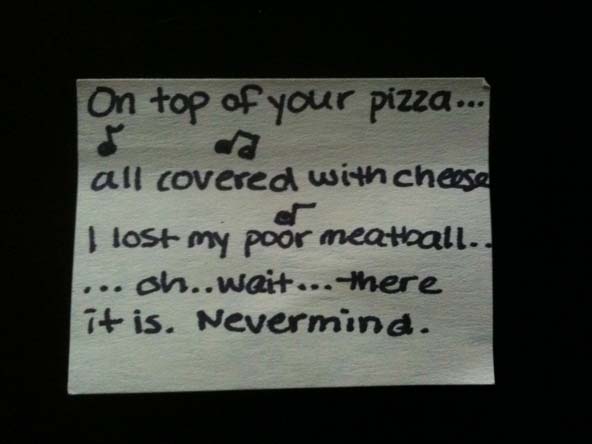 On top of your pizza...
all covered with cheese
I lost my poor meatball..
... oh..wait...there
it is. Nevermind.